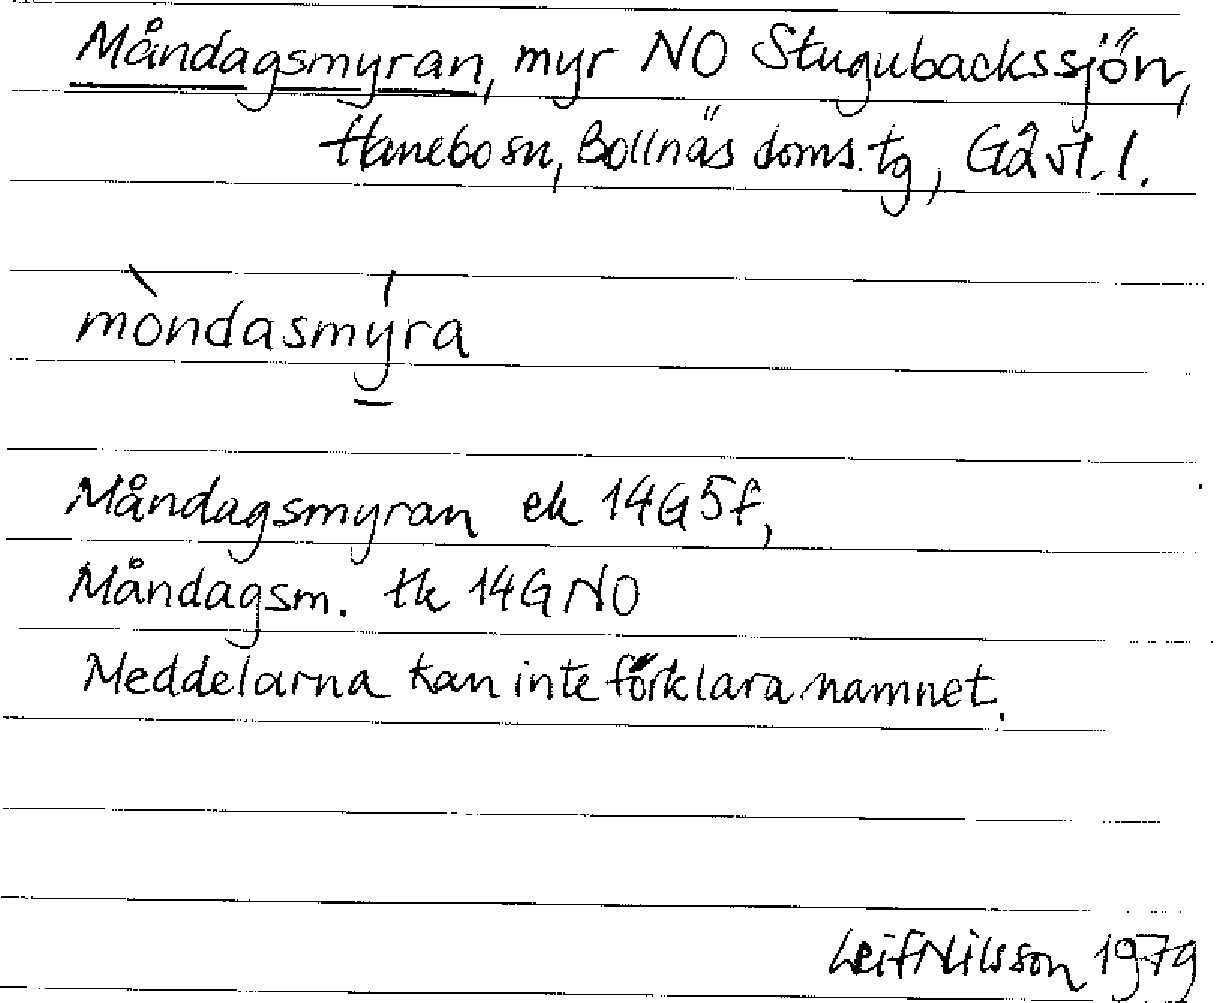 Måndagsmyran, myr NO Stugubackssjön,
Hanebo sn, Bollnäs doms.tg, Gävl. l.
mòndasmýra
Måndagsmyran ek 14G5f,
Måndagsm. tk 14GNO
Meddelarna kan inte förklara namnet.
Leif Nilsson 1979